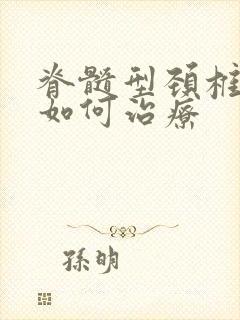 脊髓型颈椎
如何治療
孫明